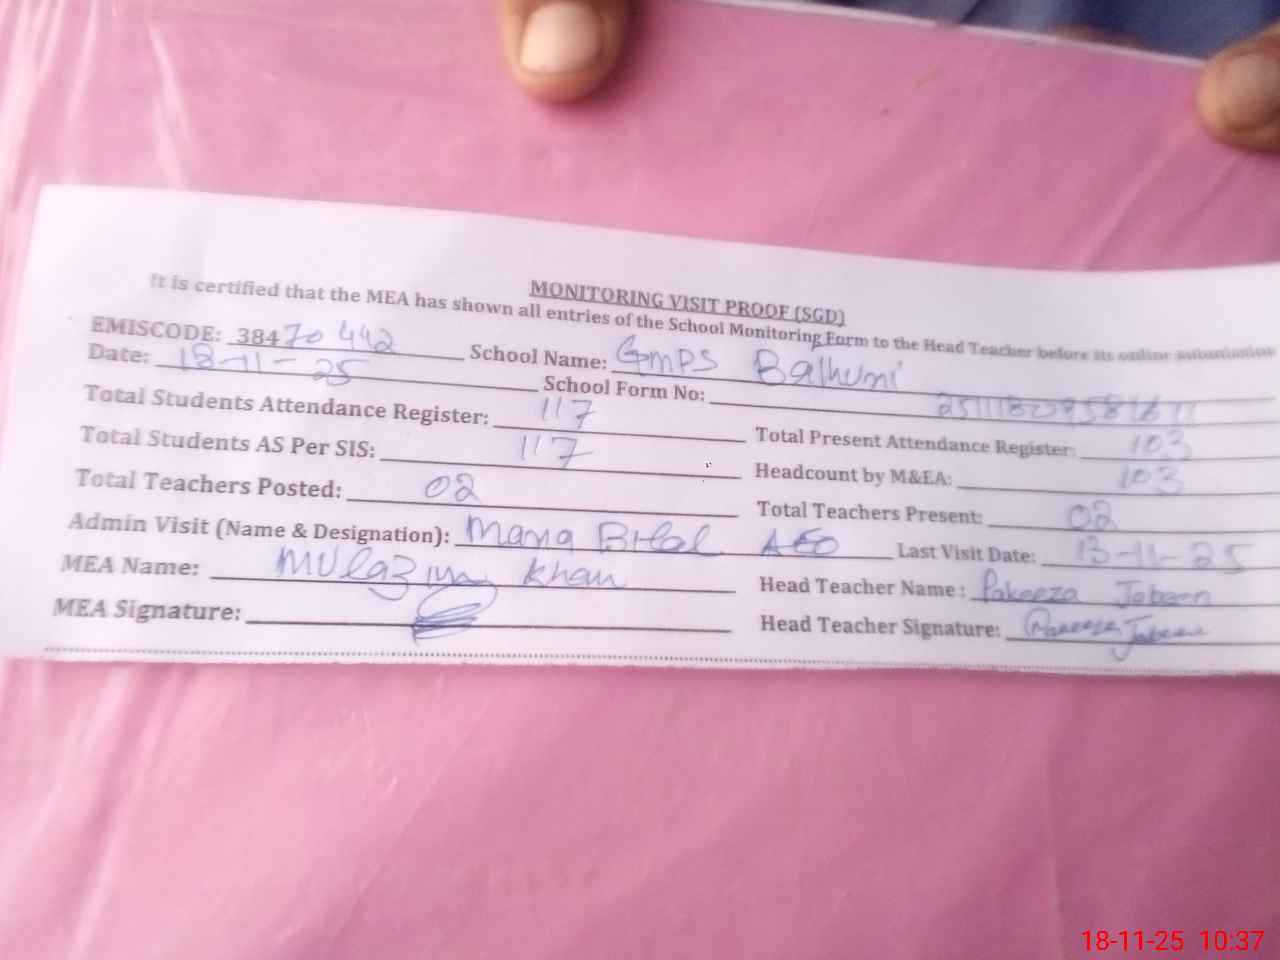 MONITORING VISIT PROOF (SGD)
It is certified that the MEA has shown all entries of the School Monitoring Form to the Head Teacher before its online submission
EMISCODE: 38470442 School Name: GMPS Balhumi
Date: 18-11-25 School Form No:
Total Students Attendance Register: 117 Total Present Attendance Register: 103
Total Students AS Per SIS: 117 Headcount by M&EA: 103
Total Teachers Posted: 02 Total Teachers Present: 02
Admin Visit (Name & Designation): Mana Bilal AEO Last Visit Date: 13-11-25
MEA Name: Mulazim Khan Head Teacher Name: Pakeeza Jabeen
MEA Signature: Head Teacher Signature: Pakeeza Jabeen
18-11-25 10:37